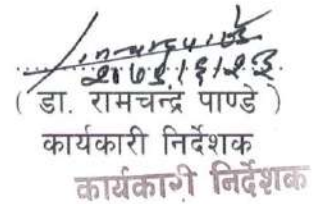 ( डा. रामचन्द्र पाण्डे )
कार्यकारी निर्देशक
कार्यकारी निर्देशक